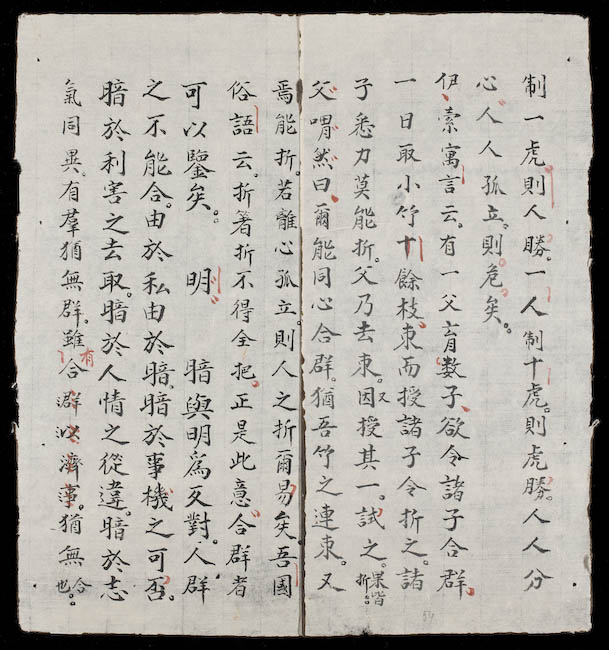 制一虎則人勝。一人制十虎。則虎勝。人人分
心人人孤立。則危矣。
伊索寓言云。有一父育數子。欲令諸子合群。
一日取小竹十餘枝。束而授諸子令折之。諸
子悉力莫能折。父乃去束。因又授其一。試之。果皆折。
父喟然曰爾能同心合群。猶吾竹之連束。又
焉能折。若離心孤立。則人之折爾易矣吾國
俗語云。折箸折不得全把。正是此意合群者
可以鑒矣。 明 暗與明爲反對。人群
之不能合。由於私由於暗。暗於事機之可否。
暗於利害之去取。暗於人情之從違。暗於志
氣同異。有羣猶無群。雖有合群以濟事。猶無合也。